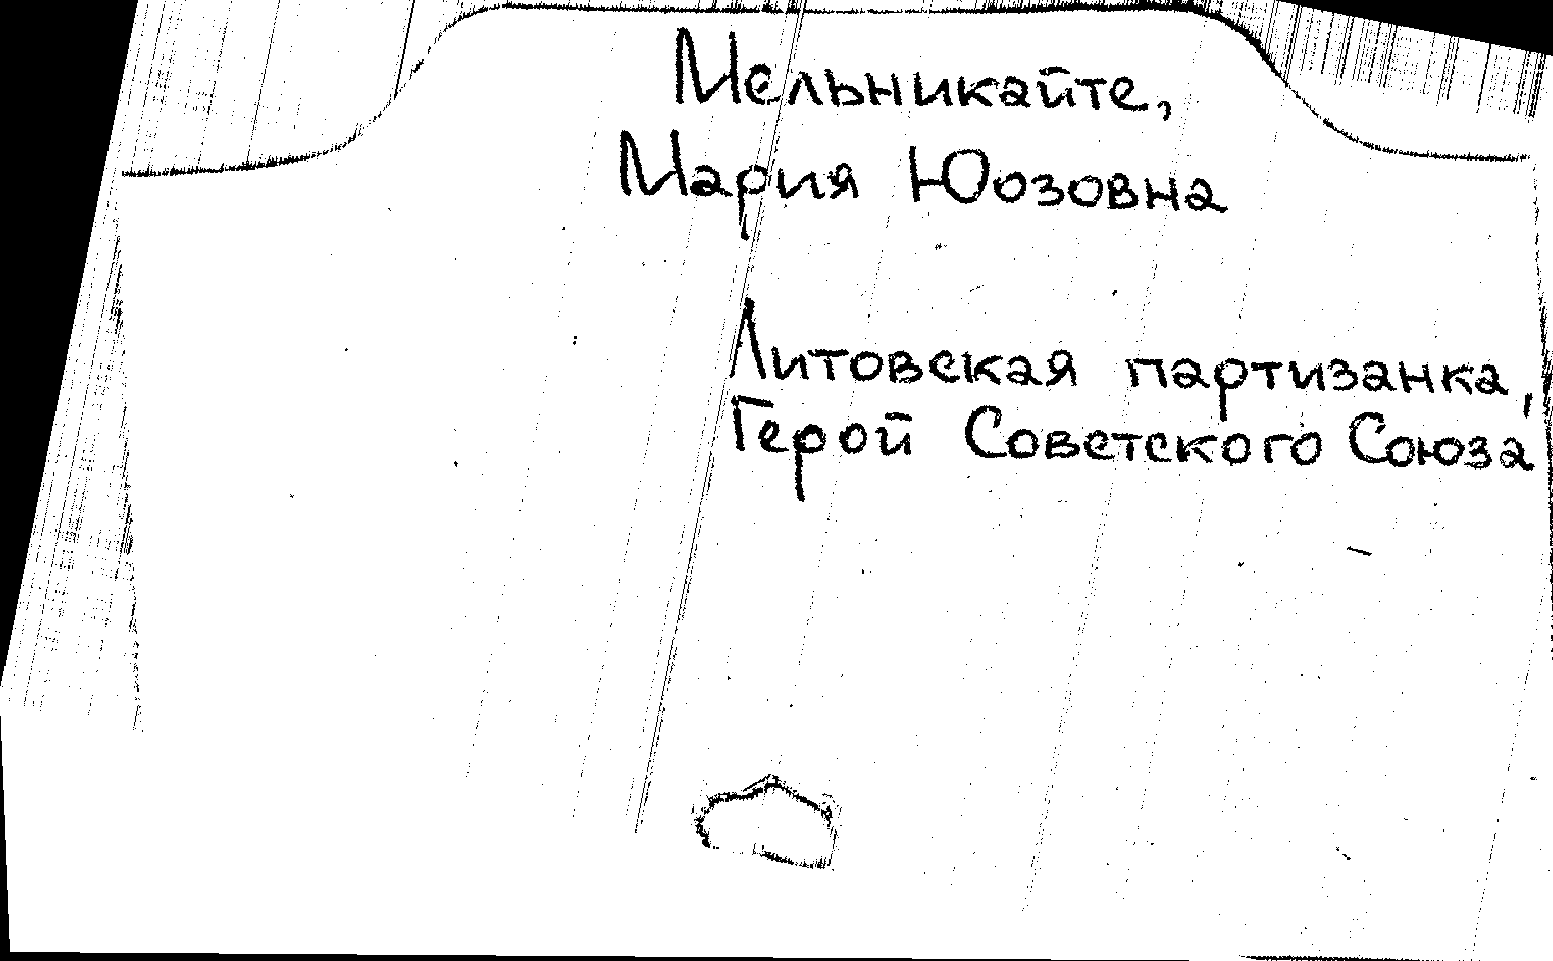 Мельникайте,
Мария Юозовна
Литовская партизанка,
Герой Советского Союза